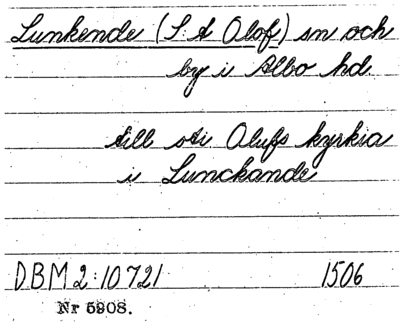 Lunkende (S:t Olof) sn och
by i Albo hd.
till sti Olufs kyrkia
i Lunckande
DBM 2:10721 1506
Nr 5908.